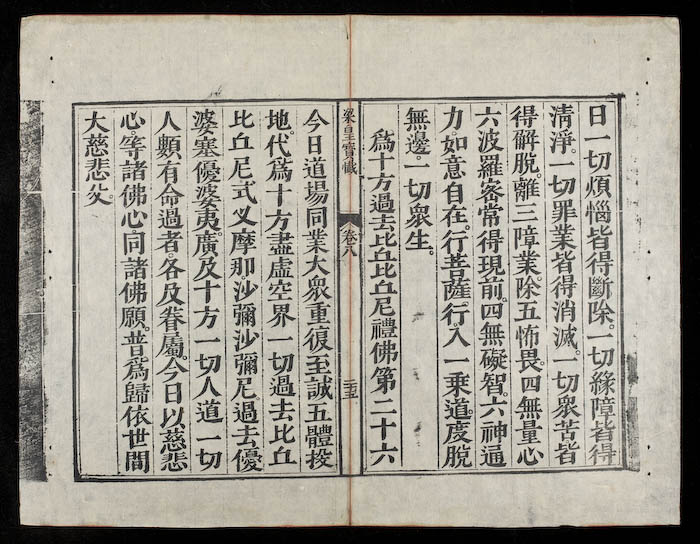 日一切煩惱皆得斷除。一切緣障皆得
清淨。一切罪業皆得消滅。一切衆苦皆
得解脫。離三障業。除五怖畏。四無量心
六波羅密常得現前。四無礙智。六神通
力。如意自在。行菩薩行。入一乘道。度脫
無邊。一切衆生。
爲十方過去比丘比丘尼禮佛第二十六
梁皇寶懺
卷八
三五
今日道場同業大衆重復至誠五體投
地。代爲十方盡虛空界一切過去比丘
比丘尼式叉摩那。沙彌沙彌尼過去優
婆塞優婆夷。廣及十方一切人道一切
人類有命過者。各及眷屬。今日以慈悲
心。等諸佛心。同諸佛願。普爲歸依世間
大慈悲父。